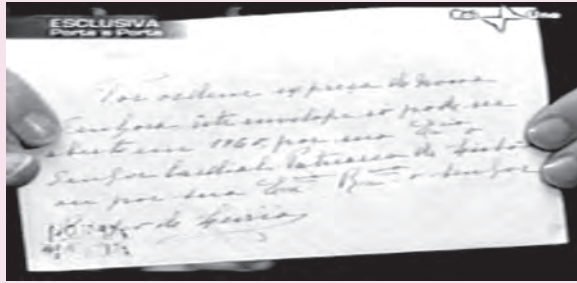 ESCLUSIVA
Porta a Porta
Uno
Por ordem expressa de Nossa
Senhora este envelope só pode ser
aberto em 1960, por sua Em.cia o
Senhor Cardial Patriarca de Lisboa
ou por sua Ex.cia Rev.ma o Senhor
Bispo de Leiria